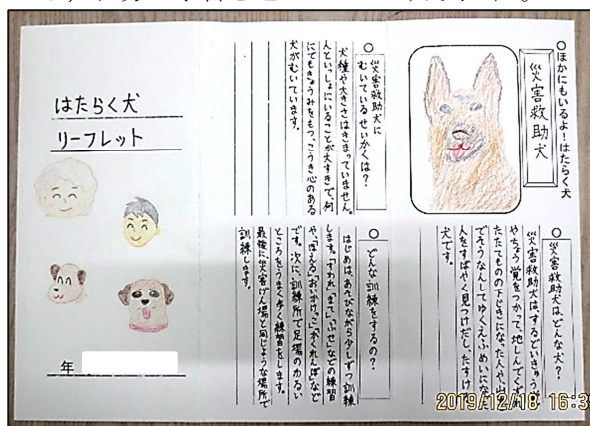 はたらく犬
リーフレット
年
○ほかにもいるよ!はたらく犬
災害救助犬
○災害救助犬は、どんな犬?
災害救助犬はするどいきゅう
やちょう覚をつかって、地しんでくずれ
たたてものの下じきになった人や山
でそうなんしてゆくえふめいになった
人をすばやく見つけだし、たすける
犬です。
○災害救助犬に
むいているせいかくは?
犬種や大きさはきまっていません。
人といっしょにいることが大すきで、何
にでもきょうみをもつ、こうき心のある
犬がむいています。
○どんな訓練をするの?
はじめは、あそびながら少しずつ訓練
します。「すわれ」「まて」「ふせ」などの練習
や、「ほえる」「おいかけっこ」「かくれんぼ」など
です。次に、訓練所で足場のわるい
ところをうまく歩く練習をします。
最後に災害げん場と同じような場所で
訓練します。
2019/12/18 16:3